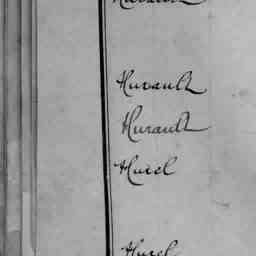 Hurault
Hurault
Hurault
Hurel
Hurel